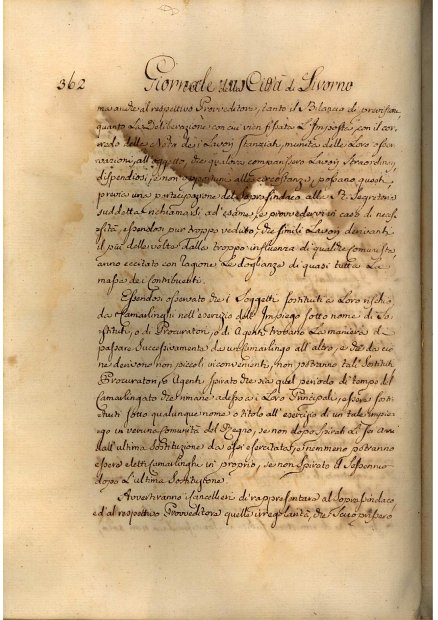 362 Giornale della Città di Livorno
mandare al respettivo Provveditore, tanto il Bilancio di previsione,
quanto La Deliberazione con cui vien fissata L'Imposta, con il cor
redo delle Note dei Lavori stanziati, munita delle Loro osser
vazioni, all'oggetto, che qualora comparissero Lavori straordinarj,
dispendiosi, e non opportuni alle circostanze, possano questi,
previa una partecipazione del Soprasindaco alla R. Segreteria
suddetta richiamarsi ad esame, e provvedervi in caso di neces
sità, essendosi pur troppo veduto, che simili Lavori derivanti
il più delle volte dalla troppo influenza di qualche
anno eccitato con ragione Le doglianze di quasi tutta La
massa dei Contribuenti.
Essendosi osservato che i Soggetti sostituiti a Loro rischio
da Camarlinghi nell'esercizio dell'Impiego sotto nome di So
stituti, o di Procuratori, o di Agenti trovano La maniera di
passare successivamente da un Camarlingo all'altro, e che da ciò
ne derivono non piccoli inconvenienti, non potranno tali Sostituti
Procuratori, o Agenti, spirato che sia quel periodo di tempo del
Camarlingato che rimane adossato i Loro Principali, essere sosti
tuiti sotto qualunque nome o titolo all'esercizio di un tale impie
go in veruna Comunità del Regno, se non dopo spirati Sei Anni
dall'ultima sostituzione da essi esercitata, e nemmeno potranno
essere eletti Camarlinghi in proprio, se non spirato il Sessennio
dopo L'ultima sostituzione.
Avvertiranno i Cancellieri di rappresentare al Soprasindaco,
ed al respettivo Provveditore quelle irregolarità, che